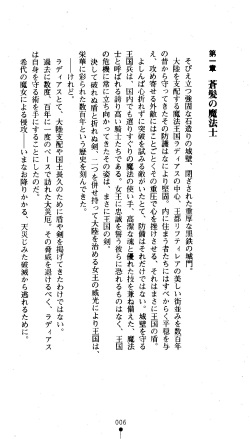 第一章　蒼髪の魔法士
そびえ立つ強固な石造りの城壁。閉ざされた重厚な黒鉄の城門。
大陸を支配する魔法王国ラディアスの中心、王都リフティレアの美しい街並みを数百年
の昔から守ってきたその防護はなにより堅固。内に住まう者たちにはすべからく平穏を与
え、攻め寄せる外敵にはことごとく重圧で心を挫けさせる、それはまさに王国の盾。
よしんば心折れずに突破を試みる敵がいたとて、防備はそれだけではない。城壁を守る
王国兵は、国内でも選りすぐりの魔法の使い手。高潔な魂と優れた技を兼ね備えた、魔法
士と呼ばれる誇り高い騎士たちである。女王に忠誠を誓う彼らに恐れるものはなく、王国
の危機に常に立ち向かってきたその姿は、まさに王国の剣。
決して破れぬ盾と折れぬ剣。二つを併せ持って大陸を治める女王の威光により王国は、
栄華に彩られた数百年という歴史を刻んできた。
――けれど。
ラディアスとて、大陸支配や国土長久のために盾や剣を掲げてきたわけではない。
過去に数度、百年に一度のペースで訪れた大災厄。その脅威を退けるべく、ラディアス
は自身を守る術を手にすることにしたのだ。
希代の魔女による侵攻――いまなお降りかかる、天災じみた破滅から逃れるために。
006